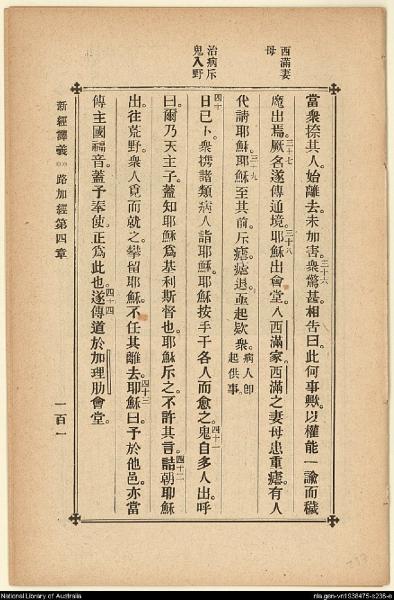 西滿妻
母
治病斥
鬼入野
當衆捺其人。始離去。未加害。三十六衆驚甚。相告曰。此何事歟。以權能一諭而穢
魔出焉。三十七厥名遂傳通境。三十八耶穌出會堂。入西滿家。西滿之妻母患重瘧。有人
代請耶穌。三十九耶穌至其前。斥瘧。瘧退。亟起款衆。病人即起供事。
四十日已下。衆携諸類病人詣耶穌。耶穌按手于各人而愈之。四十一鬼自多人出。呼
曰。爾乃天主子。蓋知耶穌爲基利斯督也。耶穌斥之。不許其言。四十二詰朝耶穌
出。往荒野。衆人覓而就之。攀留耶穌。不任其離去。四十三耶穌曰。予於他邑。亦當
傳主國福音。蓋予奉使。正爲此也。四十四遂傳道於加理肋會堂。
新經譯義 路加經第四章 一百一
National Library of Australia
nla.gen-vn1938475-s236-e